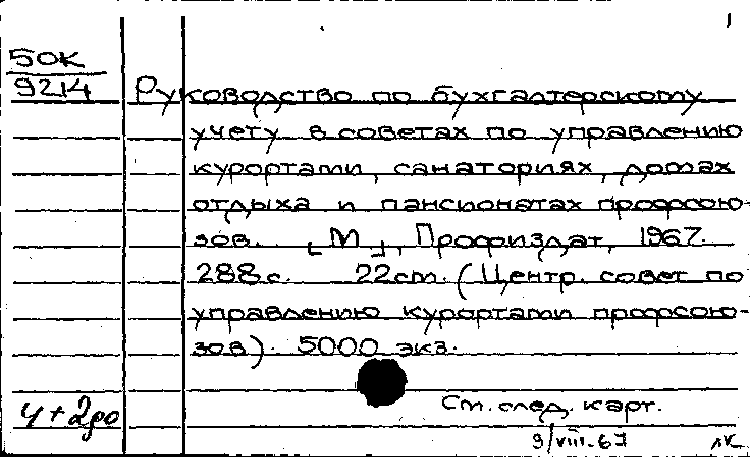 1
50К
9214
Руководство по бухгалтерскому
учету в советах по управлению
курортами, санаториях, домах
отдыха и пансионатах профсою-
зов. [М], Профиздат, 1967.
288 с. 22 см. (Центр. совет по
управлению курортами профсою-
зов). 5000 экз.
См. след. карт.
9/VIII.67 лк